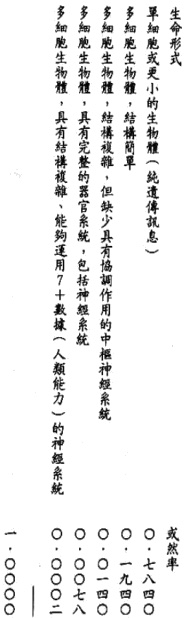 生命形式 或然率
單細胞或更小的生物體(純遺傳訊息) 〇·七八四〇
多細胞生物體,結構簡單 〇·一九四〇
多細胞生物體,結構複雜,但缺少具有協調作用的中樞神經系統 〇·〇一四〇
多細胞生物體,具有完整的器官系統,包括神經系統 〇·〇〇七八
多細胞生物體,具有結構複雜、能夠運用7+數據(人類能力)的神經系統 〇·〇〇〇二
一·〇〇〇〇